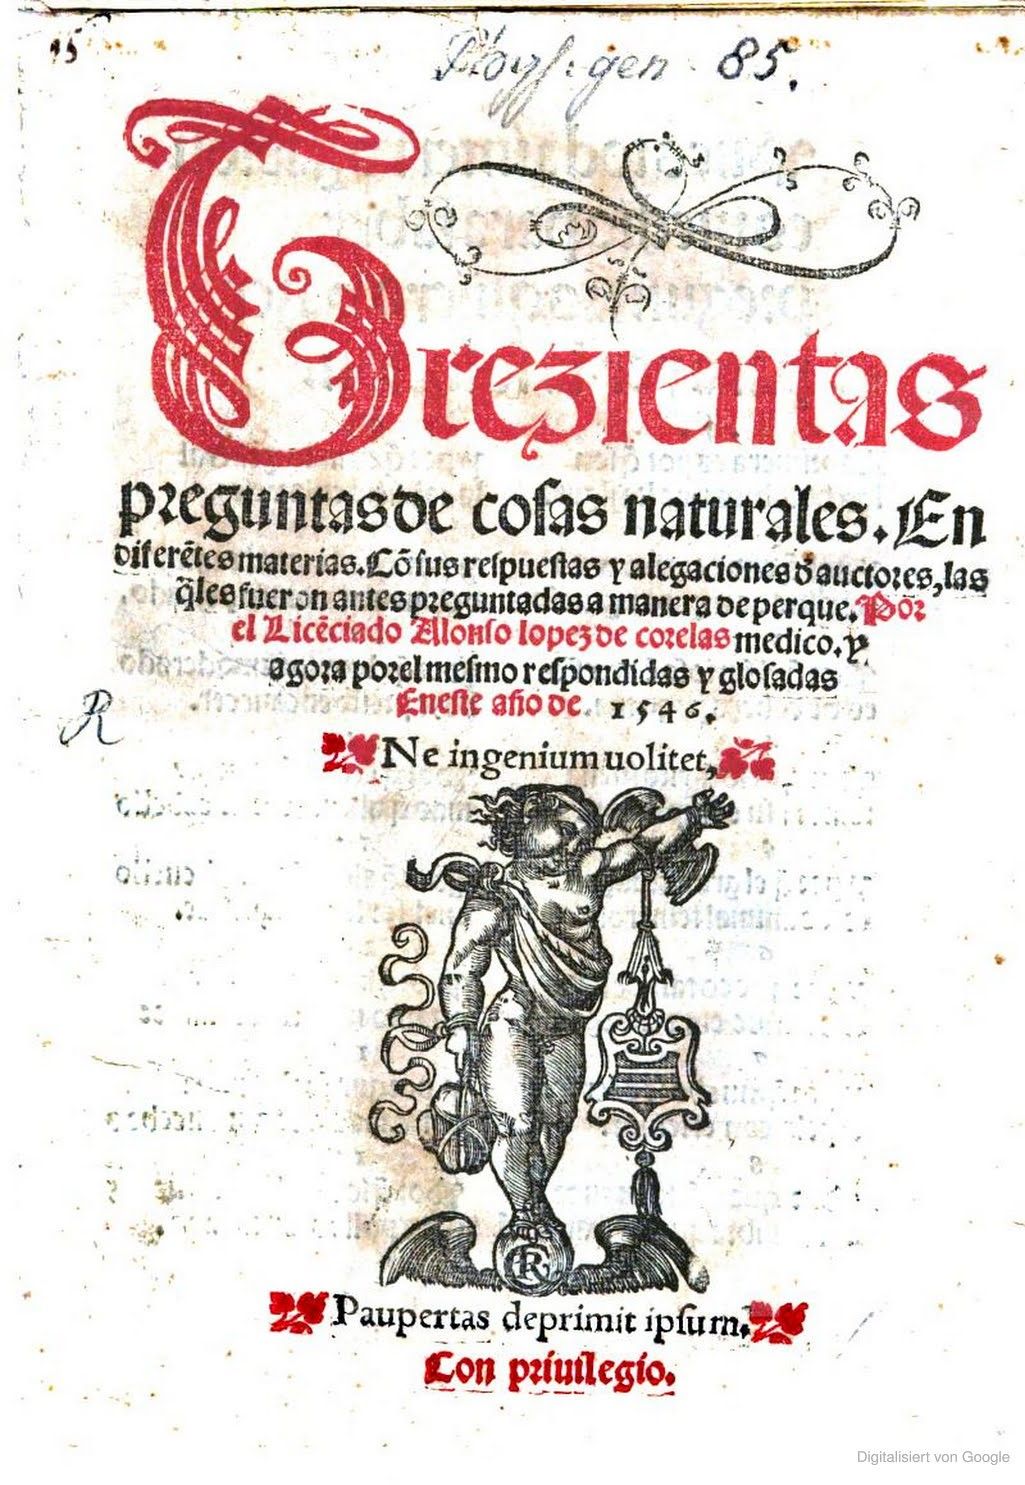 15
Phys. gen 85.
Trezientas
preguntas de cosas naturales. En
diferẽtes materias. Cõ sus respuestas y alegaciones d̄ auctores, las
q̃les fueron antes preguntadas a manera de perque. Por
el Licẽciado Alonso lopez de corelas medico. y
agora por el mesmo respondidas y glosadas
En este año de. 1546.
R
Ne ingenium uolitet,
R
Paupertas deprimit ipsum.
Con priuilegio.
Digitalisiert von Google